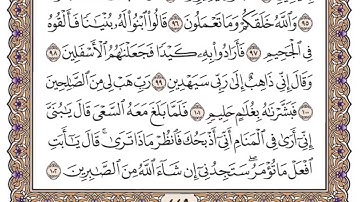 ٩٥ وَٱللَّهُ خَلَقَكُمۡ وَمَا تَعۡمَلُونَ ٩٦ قَالُواْ ٱبۡنُواْ لَهُۥ بُنۡيَٰنٗا فَأَلۡقُوهُ
فِي ٱلۡجَحِيمِ ٩٧ فَأَرَادُواْ بِهِۦ كَيۡدٗا فَجَعَلۡنَٰهُمُ ٱلۡأَسۡفَلِينَ ٩٨
وَقَالَ إِنِّي ذَاهِبٌ إِلَىٰ رَبِّي سَيَهۡدِينِ ٩٩ رَبِّ هَبۡ لِي مِنَ ٱلصَّٰلِحِينَ
١٠٠ فَبَشَّرۡنَٰهُ بِغُلَٰمٍ حَلِيمٖ ١٠١ فَلَمَّا بَلَغَ مَعَهُ ٱلسَّعۡيَ قَالَ يَٰبُنَيَّ
إِنِّيٓ أَرَىٰ فِي ٱلۡمَنَامِ أَنِّيٓ أَذۡبَحُكَ فَٱنظُرۡ مَاذَا تَرَىٰۚ قَالَ يَٰٓأَبَتِ
ٱفۡعَلۡ مَا تُؤۡمَرُۖ سَتَجِدُنِيٓ إِن شَآءَ ٱللَّهُ مِنَ ٱلصَّٰبِرِينَ ١٠٢
٤٤٩